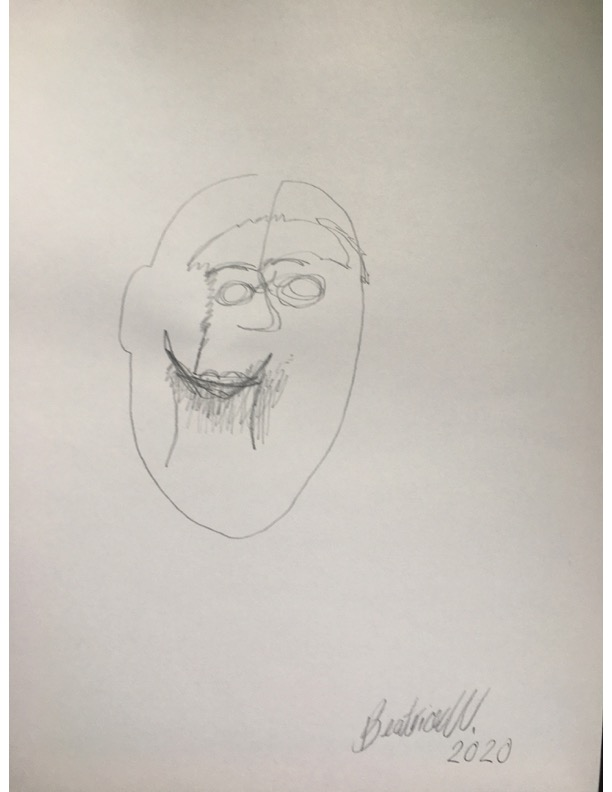 Beatrice W.
2020